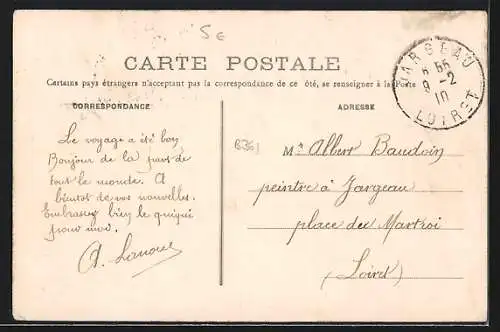 5€
CARTE POSTALE
Certains pays étrangers n'acceptant pas la correspondance de ce côté, se renseigner à la Poste
JARGEAU
9-2
10
LOIRET
CORRESPONDANCE
ADRESSE
Le voyage a été bon
Bonjour de la part de
tout le monde. A
bientôt de vos nouvelles.
Embrassez bien le quiqui
pour moi.
A. Lanoue
B361
Mr Albert Baudoin
peintre à Jargeau
place du Martroi
(Loiret)